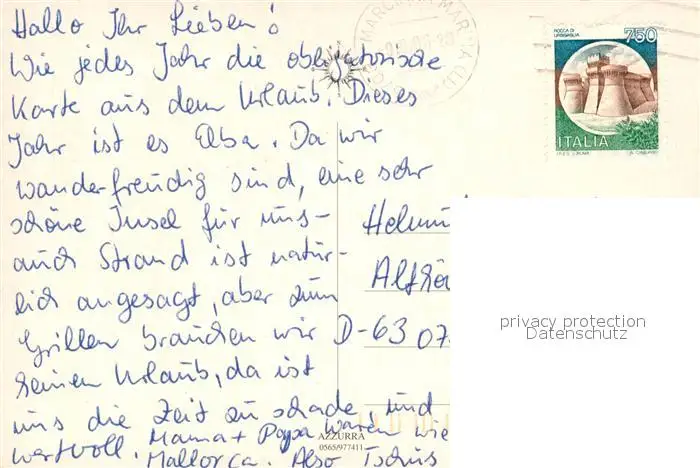 Hallo Ihr Lieben!
Wie jedes Jahr die obligatorische
Karte aus dem Urlaub. Dieses
Jahr ist es Elba. Da wir
wanderfreudig sind, eine sehr
schöne Insel für uns-
auch Strand ist natür-
lich angesagt, aber zum
Grillen brauchen wir
keinen Urlaub, da ist
uns die Zeit zu schade, und
wertvoll. Mama + Papa waren wie
Mallorca. Also Tschüs
AZZURRA
0565/977411
MARCIANA MARINA
ROCCA DI
URBISAGLIA
750
ITALIA
Helmu
D-6307
privacy protection
Datenschutz